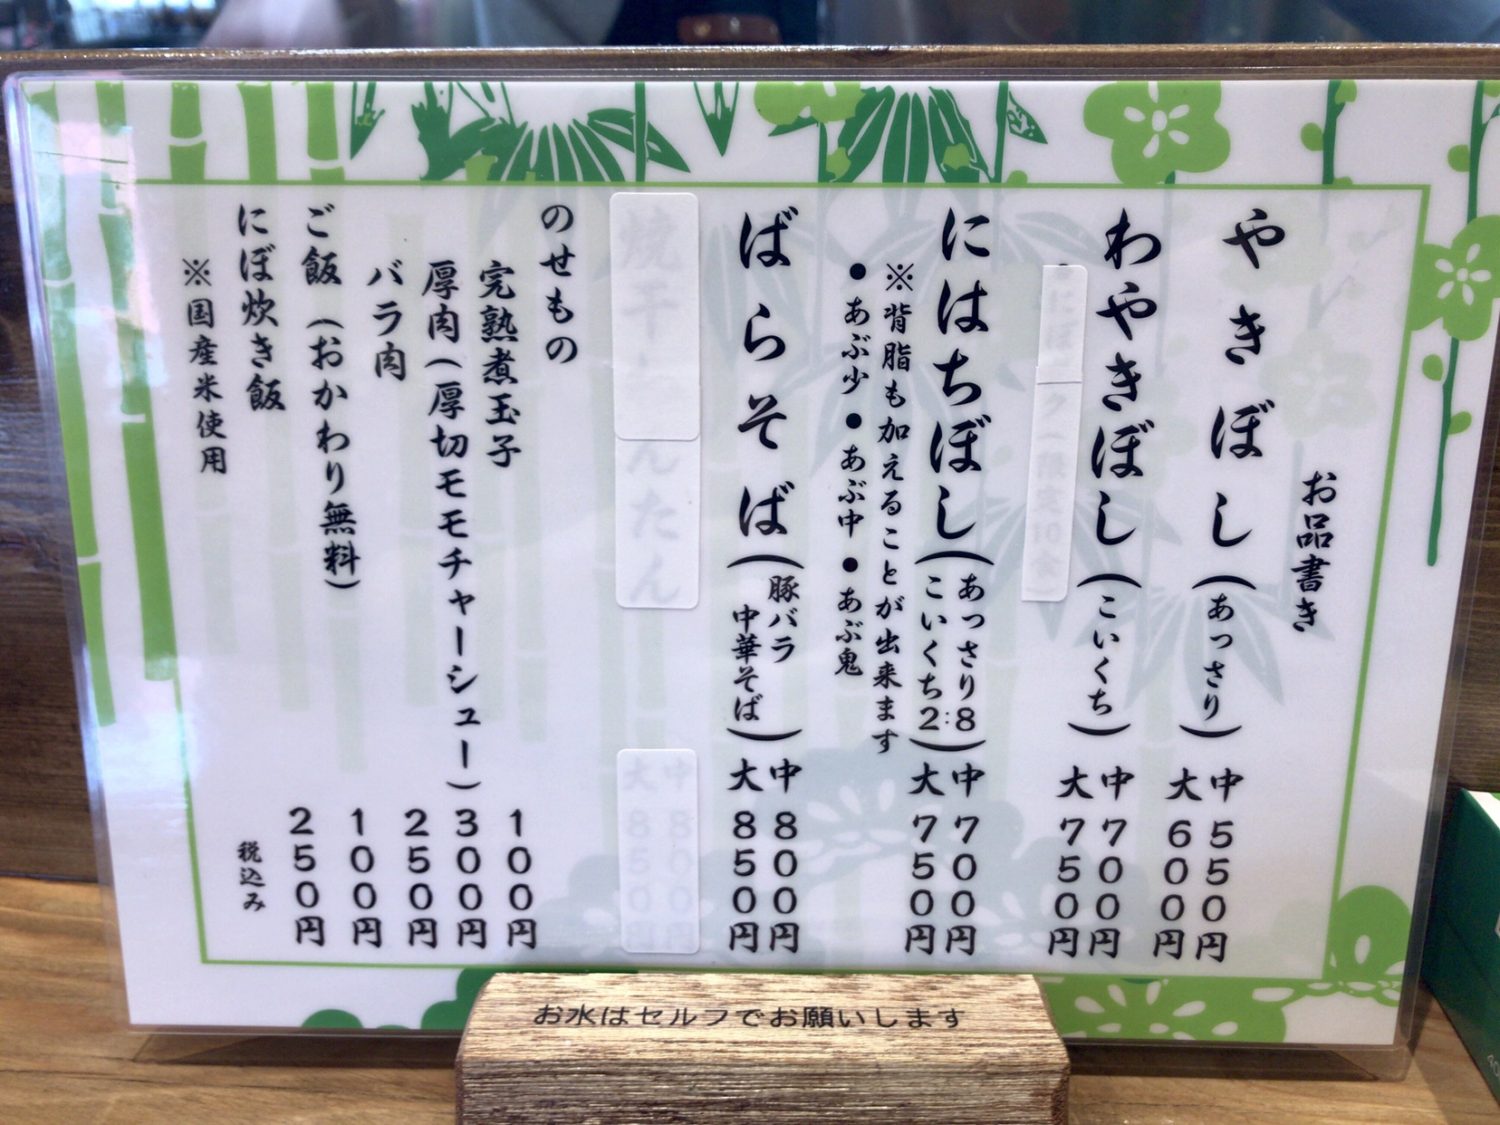 お品書き
やきぼし（あっさり）中 550円
大 600円
わやきぼし（こいくち）中 700円
大 750円
にはちぼし（あっさり8：こいくち2）中 700円
大 750円
※背脂も加えることが出来ます
●あぶ少 ●あぶ中 ●あぶ鬼
ばらそば（豚バラ中華そば）中 800円
大 850円
のせもの
完熟煮玉子 100円
厚肉（厚切モモチャーシュー）300円
バラ肉 250円
ご飯（おかわり無料）100円
にぼ炊き飯 250円
※国産米使用
税込み
お水はセルフでお願いします